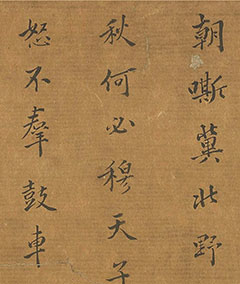 朝嘶冀北野
秋何必穆天子
怒不鼓車